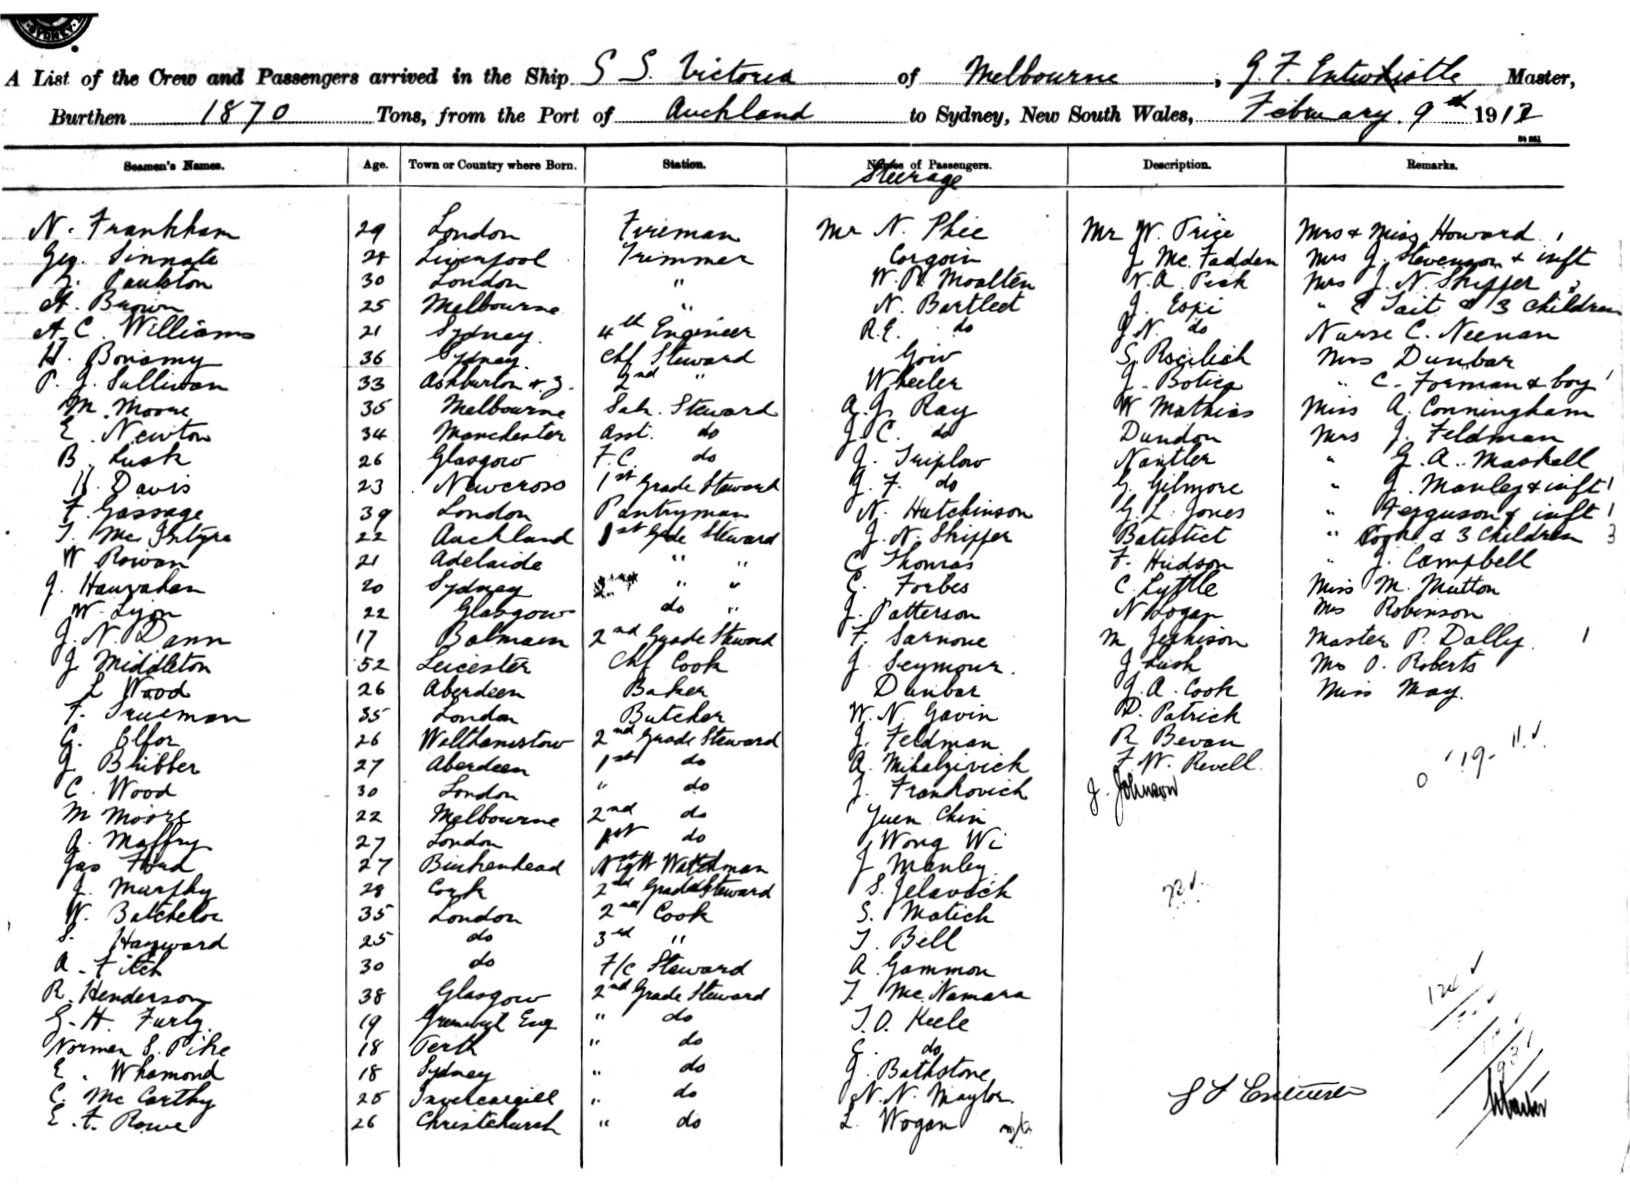 SYDNEY
A List of the Crew and Passengers arrived in the Ship S S. Victoria of Melbourne, G. F. Entwhistle Master,
Burthen 1870 Tons, from the Port of Auckland to Sydney, New South Wales, February 9th 1912
Seamen's Names. Age. Town or Country where Born. Station. Names of Passengers. Description. Remarks.
Steerage
N. Frankham 29 London Fireman Mr N. Phie Mr W. Price Mrs & Miss Howard 1
Geo. Sinnate 28 Liverpool Trimmer Corgoin J Mc Fadden Mrs J. Stevenson & inft
Paulston 30 London " W. R. Moalten N. A. Pesk Mrs J. N. Skipper
H. Brown 25 Melbourne " N. Bartlett J. Espi " E Tait & 3 children
A. C. Williams 21 Sydney 4th Engineer R. E. do J. N. do Nurse C. Neenan
H. Bonamy 36 Sydney Chf Steward Goiv S. Mrs Dunbar
P. J. Sullivan 33 Ashburton N. Z. 2nd " Wheeler J. Botica " C. Forman & boy 1
M. Moore 35 Melbourne Sal. Steward A. J. Ray W Mathias Miss A. Conningham
E. Newton 34 Manchester Asst. do J. C. do Dundon Mrs J. Feldman
B. Lusk 26 Glasgow F. C. do J. Triplow Nantler " G. A. Maskell
H. Davis 23 Newcross 1st Grade Steward J. F. do G. Gilmore " J. Manley & inft 1
F. Gassage 39 London Pantryman N. Hutchinson G. L. Jones " Ferguson & inft 1
T. McIntyre 22 Auckland 1st Grde Steward J. N. Skipper Batistict " Cooke & 3 Children 3
W Rowan 21 Adelaide " " C. Thomas F. Hudson " J. Campbell
J. Hanrahan 20 Sydney " " C. Forbes C. Lyttle Miss M. Mutton
W. Lyon 22 Glasgow do " J. Patterson N. Logan Mrs Robinson
J. N. Dann 17 Balmain 2nd Grade Steward F. Sarnove M. Jenkison Master P. Dally 1
J Middleton 52 Leicester Chf Cook J. Seymour. J Lusk Mrs O. Roberts
L Wood 26 Aberdeen Baker Dunbar J. A. Cook Miss May.
F. Trueman 35 London Butcher W. N. Gavin D. Patrick
G. Elfor 26 Walthamstow 2nd Grade Steward J. Feldman R Bevan
J Bribber 27 Aberdeen 1st do A. Mihalzivich F. W. Revell
C. Wood 30 London " do J. Frankovich J. Johnson
M Moore 22 Melbourne 2nd do Yuen Chin
A. Maffry 27 London 1st do Wong Wi
Jas Ford 27 Birkenhead Night Watchman J Manley
J. Murphy 28 Cork 2nd Grade Steward S. Jelavich
W. Batchelor 35 London 2nd Cook S. Matich
S. Hayward 25 do 3rd " T. Bell
A. Fitch 30 do F/c Steward A Gammon
R. Henderson 38 Glasgow 2nd Grade Steward T. Mc Namara
G. H. Furly 19 Greenwich Eng. " do T. O. Keele
Norman S. Pike 18 Perth " do C. do
E. Whamond 18 Sydney " do J. Bathstone
C. McCarthy 25 Invercargill " do N. N. Maylor
E. F. Rowe 26 Christchurch " do L. Wogan